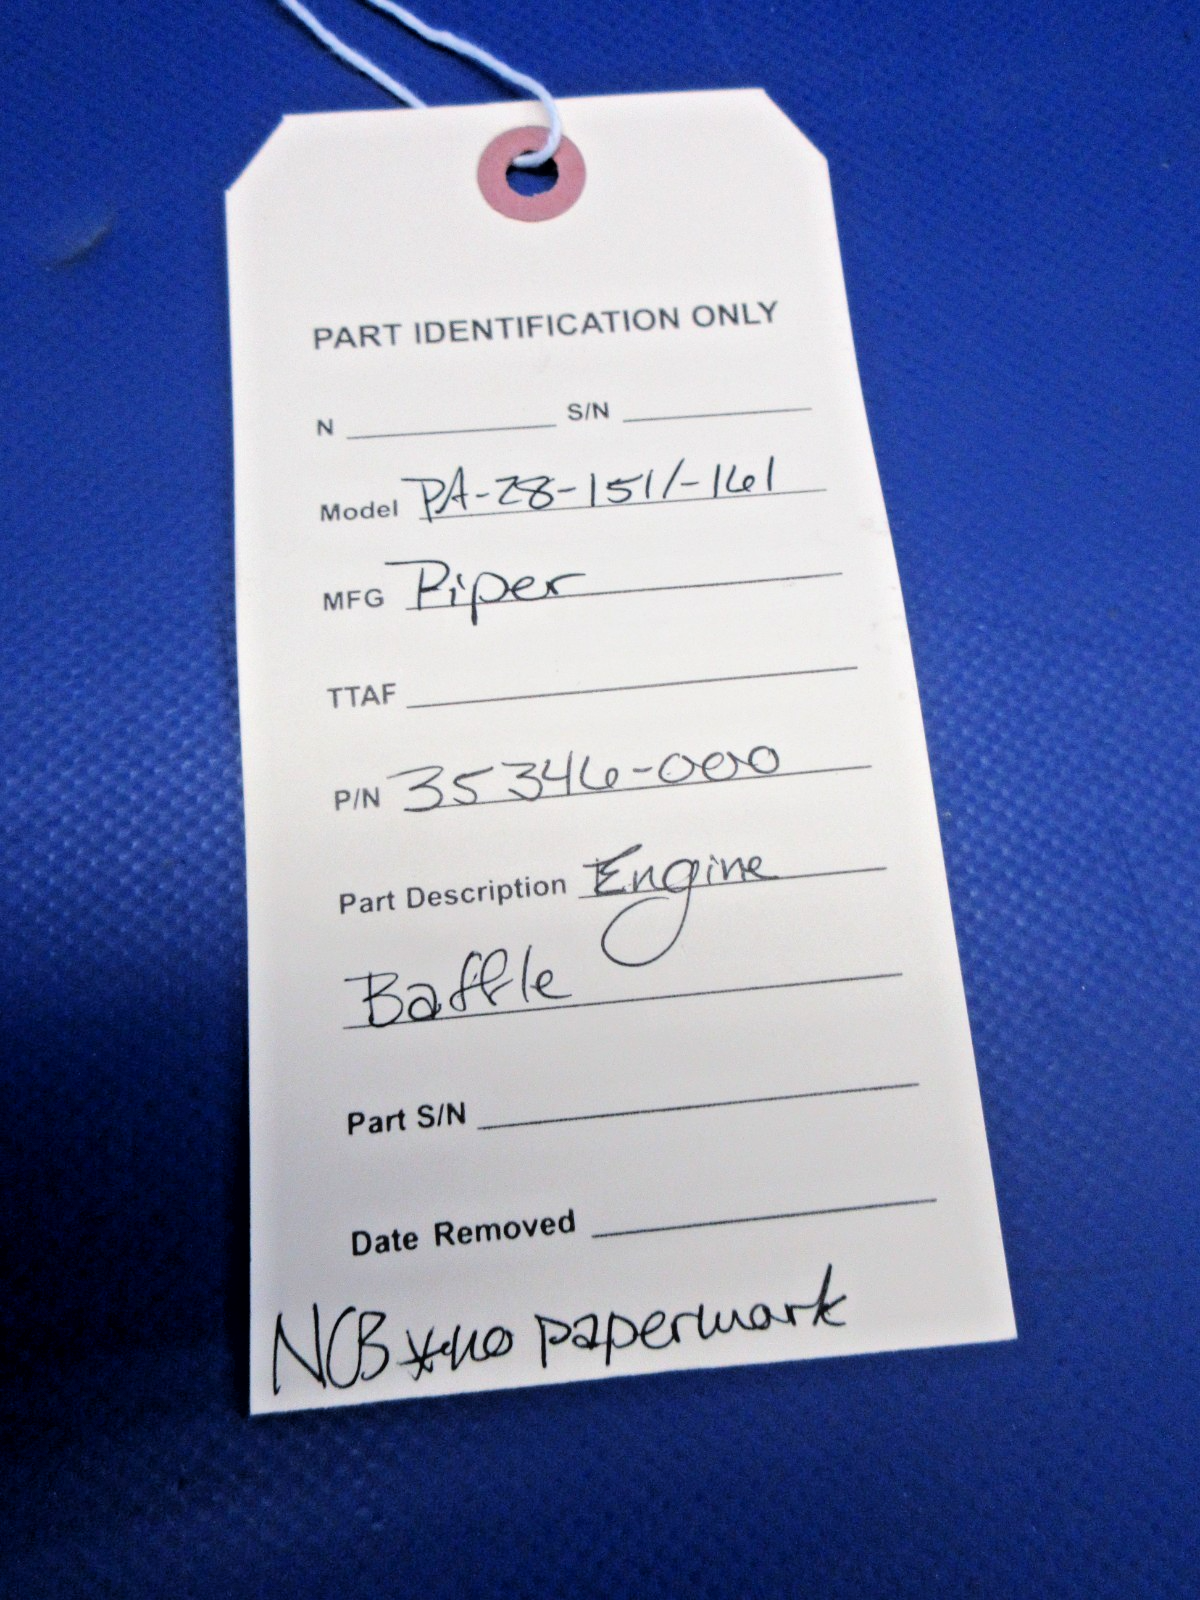 PART IDENTIFICATION ONLY
N S/N
Model PA-28-151/-161
MFG Piper
TTAF
P/N 35346-000
Part Description Engine
Baffle
Part S/N
Date Removed
NCB *no papermark